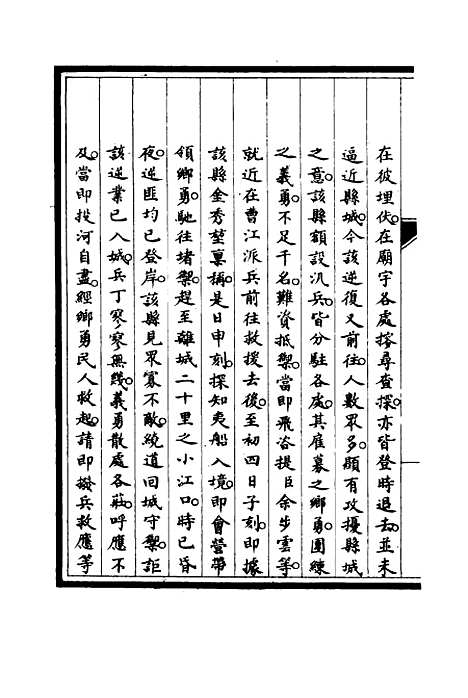 在彼埋伏。在廟宇各處搜尋查探。亦皆登時退去。並未
逼近縣城。今該逆復又前往。人數眾多。顯有攻擾縣城
之意。該縣額設汛兵。皆分駐各處。其雇募之鄉勇。團練
之義勇。不足千名。難資抵禦。當即飛咨提臣余步雲等。
就近在曹江派兵前往救援去後。至初四日子刻。即據
該縣金秀堃稟稱。是日申刻。探知夷船入境。即會營帶
領鄉勇。馳往堵禦。趕至離城二十里之小江口。時已昏
夜。逆匪均已登岸。該縣見眾寡不敵。繞道回城守禦。詎
該逆業已入城。兵丁寥寥無幾。義勇散處各莊。呼應不
及。當即投河自盡。經鄉勇民人救起。請即撥兵救應等